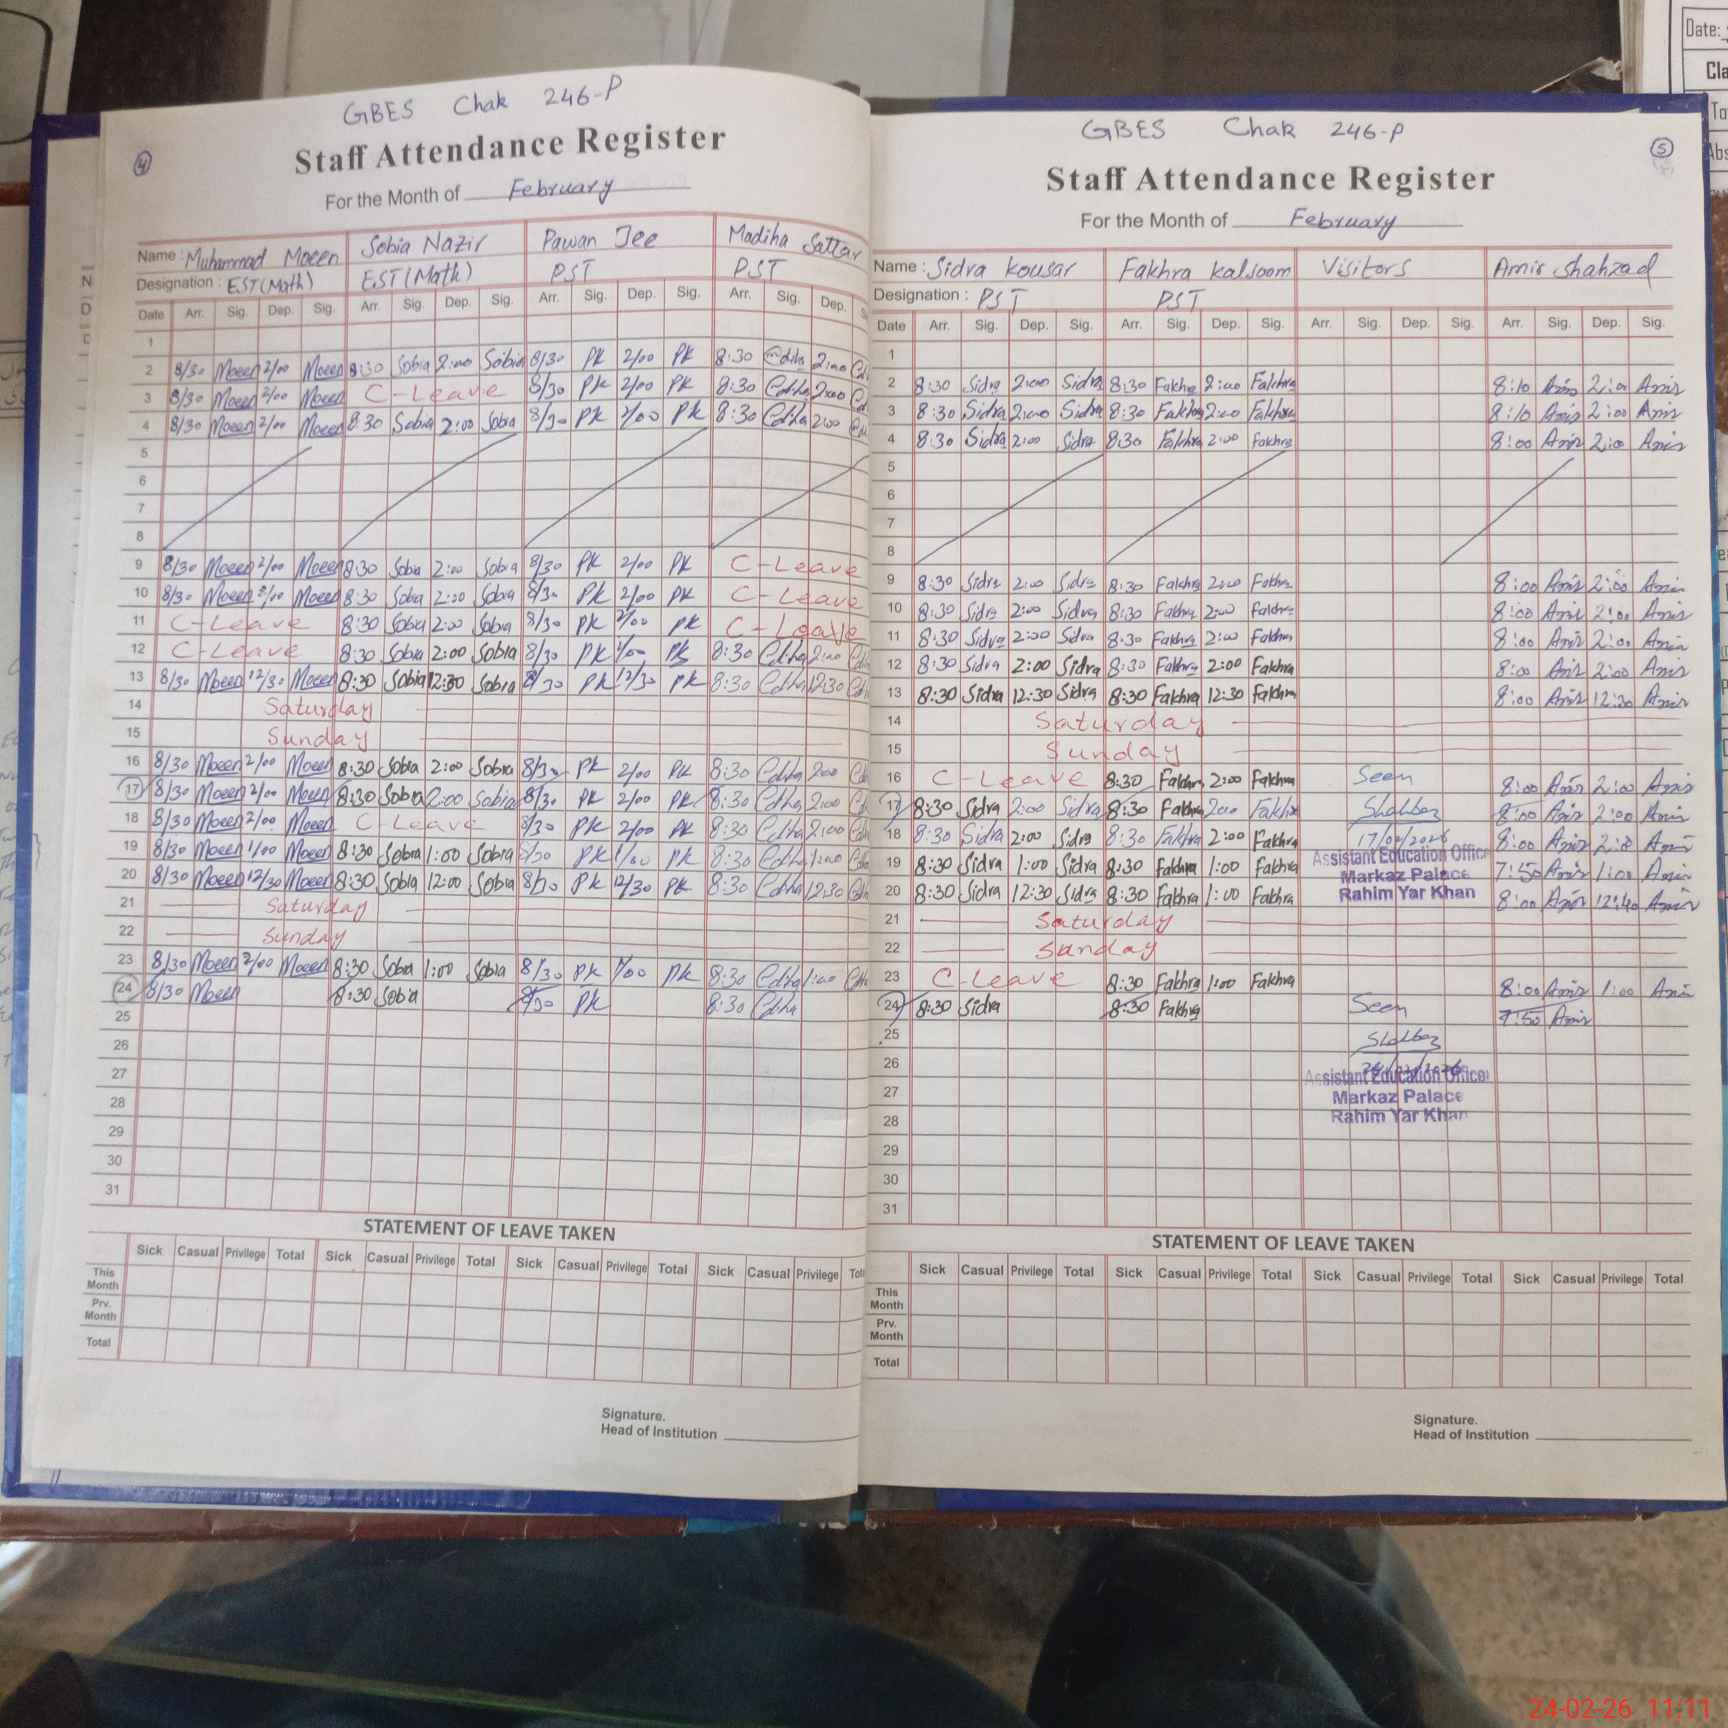 GBES Chak 246-P
4
Staff Attendance Register
For the Month of February
Name : Muhammad Moeen Sobia Nazir Pawan Jee Madiha Sattar
Designation : EST(Math) EST(Math) PST PST
Date Arr. Sig. Dep. Sig. Arr. Sig. Dep. Sig. Arr. Sig. Dep. Sig. Arr. Sig. Dep.
1
2 8/30 Moeen 2/00 Moeen 8:30 Sobia 2:00 Sobia 8/30 PK 2/00 PK 8:30 2:00
3 8/30 Moeen 2/00 Moeen C-Leave 8/30 PK 2/00 PK 8:30 2:00
4 8/30 Moeen 2/00 Moeen 8:30 Sobia 2:00 Sobia 8/30 PK 2/00 PK 8:30 2:00
5
6
7
8
9 8/30 Moeen 2/00 Moeen 8:30 Sobia 2:00 Sobia 8/30 PK 2/00 PK C-Leave
10 8/30 Moeen 2/00 Moeen 8:30 Sobia 2:00 Sobia 8/30 PK 2/00 PK C-Leave
11 C-Leave 8:30 Sobia 2:00 Sobia 8/30 PK 2/00 PK C-Leave
12 C-Leave 8:30 Sobia 2:00 Sobia 8/30 PK PK 8:30 2:00
13 8/30 Moeen 12/30 Moeen 8:30 Sobia 12:30 Sobia 8/30 PK 12/30 PK 8:30 12:30
14 Saturday
15 Sunday
16 8/30 Moeen 2/00 Moeen 8:30 Sobia 2:00 Sobia 8/30 PK 2/00 PK 8:30 2:00
17 8/30 Moeen 2/00 Moeen 8:30 Sobia 2:00 Sobia 8/30 PK 2/00 PK 8:30 2:00
18 8/30 Moeen 2/00 Moeen C-Leave 8/30 PK 2/00 PK 8:30 2:00
19 8/30 Moeen 1/00 Moeen 8:30 Sobia 1:00 Sobia 8/30 PK 1/00 PK 8:30 1:00
20 8/30 Moeen 12/30 Moeen 8:30 Sobia 12:00 Sobia 8/30 PK 12/30 PK 8:30 12:30
21 Saturday
22 Sunday
23 8/30 Moeen 2/00 Moeen 8:30 Sobia 1:00 Sobia 8/30 PK 1/00 PK 8:30 1:00
24 8/30 Moeen 8:30 Sobia 8/30 PK 8:30
25
26
27
28
29
30
31
STATEMENT OF LEAVE TAKEN
Sick Casual Privilege Total Sick Casual Privilege Total Sick Casual Privilege Total Sick Casual Privilege
This Month
Prv. Month
Total
Signature.
Head of Institution
GBES Chak 246-P
5
Staff Attendance Register
For the Month of February
Name : Sidra kousar Fakhra kalsoom Visitors Amir Shahzad
Designation : PST PST
Date Arr. Sig. Dep. Sig. Arr. Sig. Dep. Sig. Arr. Sig. Dep. Sig. Arr. Sig. Dep. Sig.
1
2 8:30 Sidra 2:00 Sidra 8:30 Fakhra 2:00 Fakhra 8:10 Amir 2:00 Amir
3 8:30 Sidra 2:00 Sidra 8:30 Fakhra 2:00 Fakhra 8:10 Amir 2:00 Amir
4 8:30 Sidra 2:00 Sidra 8:30 Fakhra 2:00 Fakhra 8:00 Amir 2:00 Amir
5
6
7
8
9 8:30 Sidra 2:00 Sidra 8:30 Fakhra 2:00 Fakhra 8:00 Amir 2:00 Amir
10 8:30 Sidra 2:00 Sidra 8:30 Fakhra 2:00 Fakhra 8:00 Amir 2:00 Amir
11 8:30 Sidra 2:00 Sidra 8:30 Fakhra 2:00 Fakhra 8:00 Amir 2:00 Amir
12 8:30 Sidra 2:00 Sidra 8:30 Fakhra 2:00 Fakhra 8:00 Amir 2:00 Amir
13 8:30 Sidra 12:30 Sidra 8:30 Fakhra 12:30 Fakhra 8:00 Amir 12:30 Amir
14 Saturday
15 Sunday
16 C-Leave 8:30 Fakhra 2:00 Fakhra Seen 8:00 Amir 2:00 Amir
17 8:30 Sidra 2:00 Sidra 8:30 Fakhra 2:00 Fakhra 8:00 Amir 2:00 Amir
18 8:30 Sidra 2:00 Sidra 8:30 Fakhra 2:00 Fakhra 17/02/2026 8:00 Amir 2:00 Amir
19 8:30 Sidra 1:00 Sidra 8:30 Fakhra 1:00 Fakhra 7:50 Amir 1:00 Amir
20 8:30 Sidra 12:30 Sidra 8:30 Fakhra 1:00 Fakhra 8:00 Amir 12:40 Amir
Assistant Education Office
Markaz Palace
Rahim Yar Khan
21 Saturday
22 Sunday
23 C-Leave 8:30 Fakhra 1:00 Fakhra 8:00 Amir 1:00 Amir
24 8:30 Sidra 8:30 Fakhra Seen 7:50 Amir
25
26
24/02/2026
Assistant Education Officer
Markaz Palace
Rahim Yar Khan
27
28
29
30
31
STATEMENT OF LEAVE TAKEN
Sick Casual Privilege Total Sick Casual Privilege Total Sick Casual Privilege Total Sick Casual Privilege Total
This Month
Prv. Month
Total
Signature.
Head of Institution
Date:
24-02-26 11:11